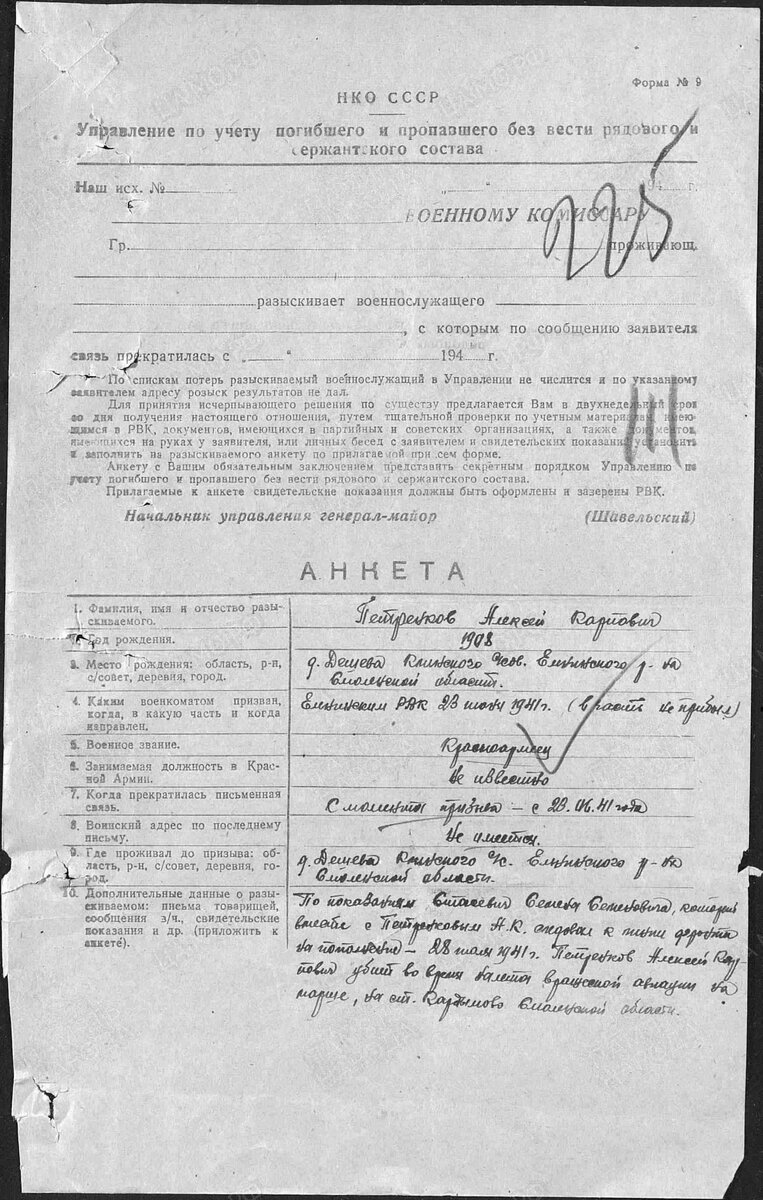 Форма № 9
НКО СССР
Управление по учету погибшего и пропавшего без вести рядового и
сержантского состава
Наш исх. № „ “ 194 г.
225
ВОЕННОМУ КОМИССАРУ
Гр. проживающ.
разыскивает военнослужащего
, с которым по сообщению заявителя
связь прекратилась с „ “ 194 г.
По спискам потерь разыскиваемый военнослужащий в Управлении не числится и по указанному
заявителем адресу розыск результатов не дал.
Для принятия исчерпывающего решения по существу предлагается Вам в двухнедельный срок
со дня получения настоящего отношения, путем тщательной проверки по учетным материалам, имею-
щимся в РВК, документов, имеющихся в партийных и советских организациях, а также документов,
имеющихся на руках у заявителя, или личных бесед с заявителем и свидетельских показаний установить
и заполнить на разыскиваемого анкету по прилагаемой при сем форме.
Анкету с Вашим обязательным заключением представить секретным порядком Управлению по
учету погибшего и пропавшего без вести рядового и сержантского состава.
Прилагаемые к анкете свидетельские показания должны быть оформлены и заверены РВК.
Начальник управления генерал-майор (Шавельский)
АНКЕТА
1. Фамилия, имя и отчество разы-
скиваемого.
Петренков Алексей Карпович
2. Год рождения.
1908
3. Место рождения: область, р-н,
с/совет, деревня, город.
д. Дешева с/сов. Ельнинского р-на
Смоленской области.
4. Каким военкоматом призван,
когда, в какую часть и когда
направлен.
Ельнинским РВК 23 1941 г. (в часть не прибыл)
5. Военное звание.
Красноармеец
6. Занимаемая должность в Крас-
ной Армии.
Не известно
7. Когда прекратилась письменная
связь.
С момента призыва — с 23. 41 года
8. Воинский адрес по последнему
письму.
Не имеется.
9. Где проживал до призыва: об-
ласть, р-н, с/совет, деревня, го-
род.
д. Дешева с/с. Ельнинского р-на
Смоленской области.
10. Дополнительные данные о разы-
скиваемом: письма товарищей,
сообщения з/ч., свидетельские
показания и др. (приложить к
анкете).
По показаниям Стасевич Семена Семеновича, который
вместе с Петренковым А.К. следовал к линии фронта
на пополнение — 28 июля 1941 г. Петренков Алексей Кар-
пович убит во время налета вражеской авиации на
марше, на ст. Кардымово Смоленской области.